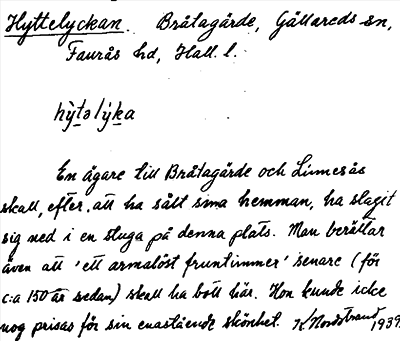 Hyttelyckan. Bråtagärde, Gällareds sn,
Faurås hd, Hall. l.
hỳtəlỳka
En ägare till Bråtagärde och Linnesås
skall, efter att ha sålt sina hemman, ha slagit
sig ned i en stuga på denna plats. Man berättar
även att 'ett armalöst fruntimmer' senare (för
c:a 150 år sedan) skall ha bott här. Hon kunde icke
nog prisas för sin enastående skönhet. K. Nordstrand 1939.